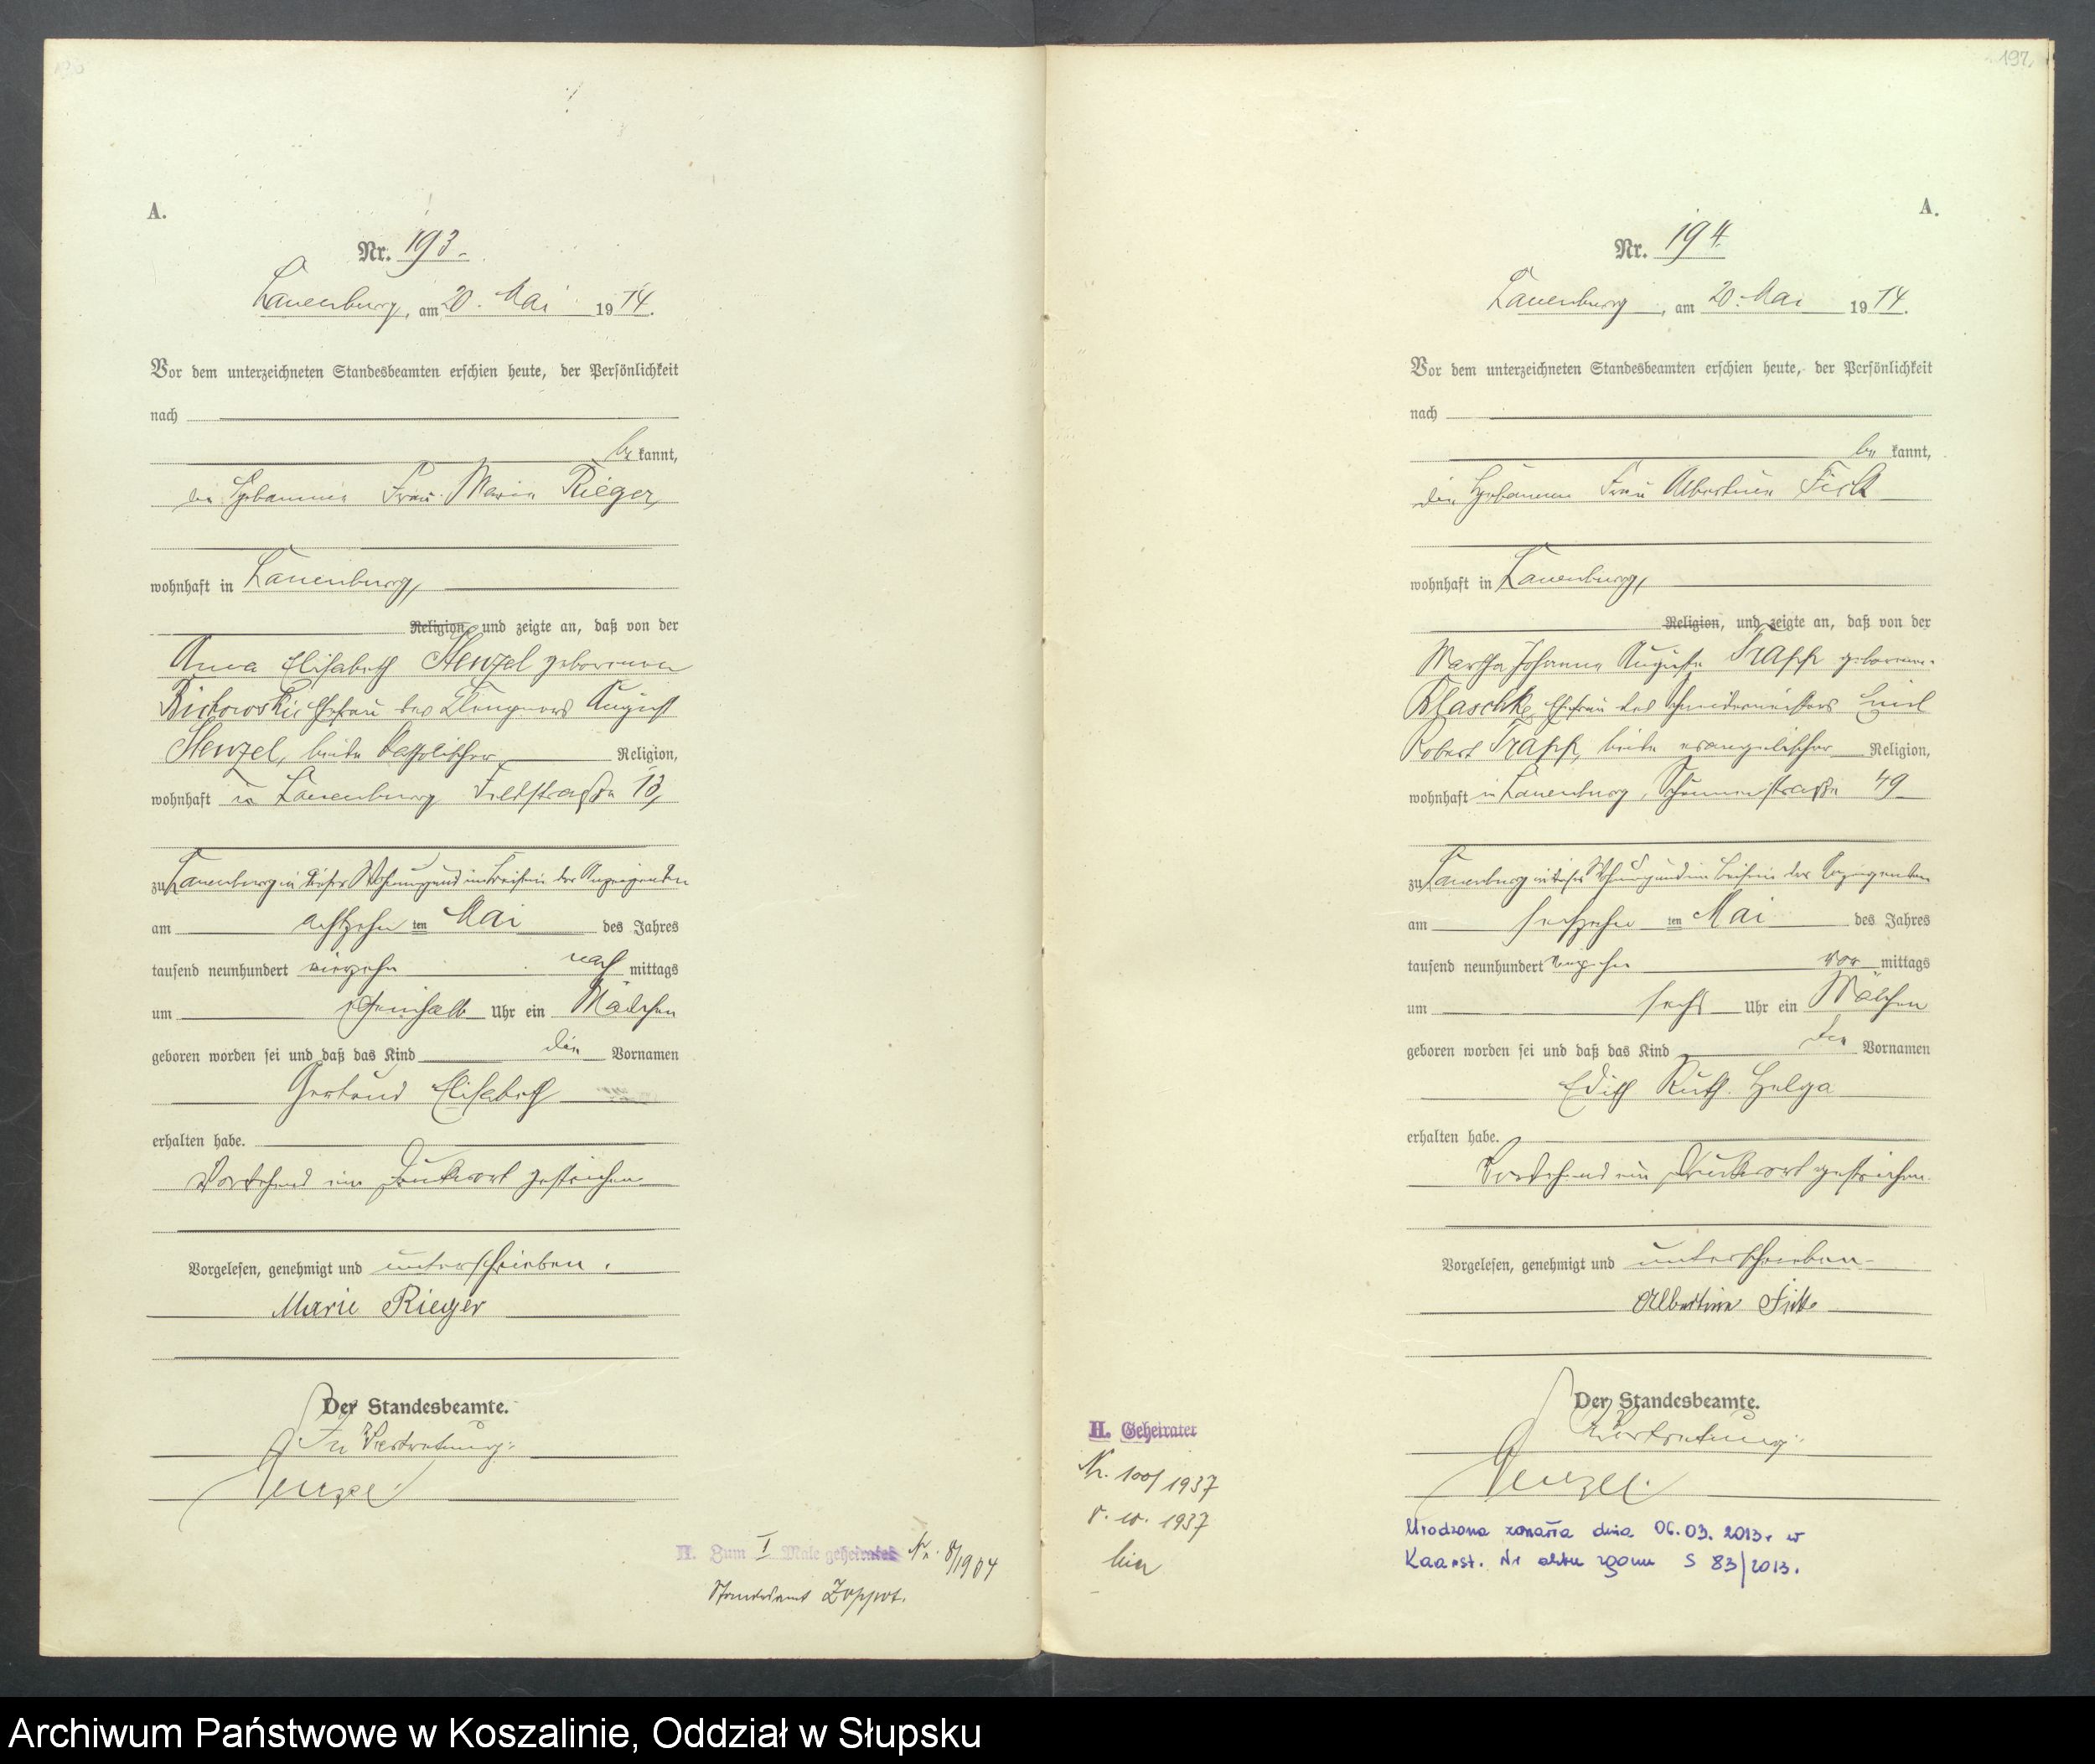 A.
Nr. 193.
Lauenburg, am 20. Mai 1914.
Vor dem unterzeichneten Standesbeamten erschien heute, der Persönlichkeit
nach
bekannt,
die Hebamme Frau Marie Rieger,
wohnhaft in Lauenburg,
Religion, und zeigte an, daß von der
Anna Elisabeth Henzel geborenen
Bichowski Ehefrau des Klempners August
Henzel, beide katholischer Religion,
wohnhaft in Lauenburg Feldstraße 13,
zu Lauenburg in dieser Wohnung und im Beisein der Anzeigenden
am achtzehnten Mai des Jahres
tausend neunhundert vierzehn nachmittags
um Uhr ein Mädchen
geboren worden sei und daß das Kind die Vornamen
Gertrud Elisabeth
erhalten habe.
Vorstehend ein Druckwort gestrichen
Vorgelesen, genehmigt und unterschrieben.
Marie Rieger
Der Standesbeamte.
In Vertretung:
Wenzel
H. Zum I Male geheiratet Nr. 8/1904
Standesamt Zoppot.
197.
A.
Nr. 194
Lauenburg, am 20. Mai 1914.
Vor dem unterzeichneten Standesbeamten erschien heute, der Persönlichkeit
nach
bekannt,
die Hebamme Frau Albertine Fick
wohnhaft in Lauenburg,
Religion, und zeigte an, daß von der
Martha Johanna Auguste Trapp geborene
Blaschke, Ehefrau des Schneidermeisters Emil
Robert Trapp, beide evangelischer Religion,
wohnhaft in Lauenburg, 49
zu Lauenburg in dieser Wohnung und im Beisein der Anzeigenden
am sechzehnten Mai des Jahres
tausend neunhundert vierzehn vormittags
um sechs Uhr ein Mädchen
geboren worden sei und daß das Kind die Vornamen
Edith Ruth Helga
erhalten habe.
Vorstehend ein Druckwort gestrichen.
Vorgelesen, genehmigt und unterschrieben
Albertine Fick
Der Standesbeamte.
In Vertretung:
Wenzel.
H. Geheiratet
Nr. 100/1937
1937
hier
Urodzona zmarła dnia 06.03.2013r w
Nr aktu zgonu S 83/2013.
Archiwum Państwowe w Koszalinie, Oddział w Słupsku